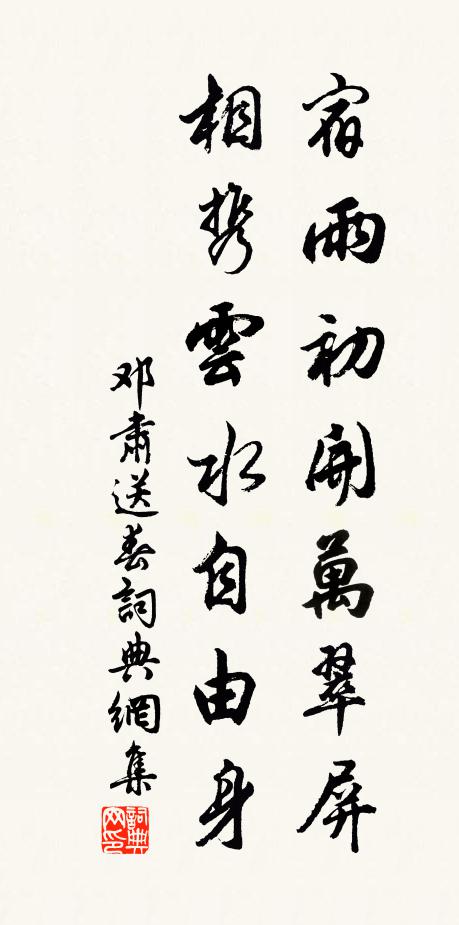 宿雨初開萬翠屏
相携雲水自由身
邓肅送春詞典網集
詞典網印